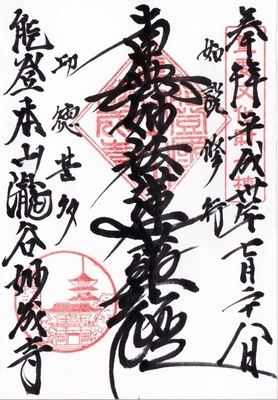 奉拝 平成卅年七月二十八日
如説修行
南無妙法蓮華経
功徳甚多
能登本山瀧谷妙成寺